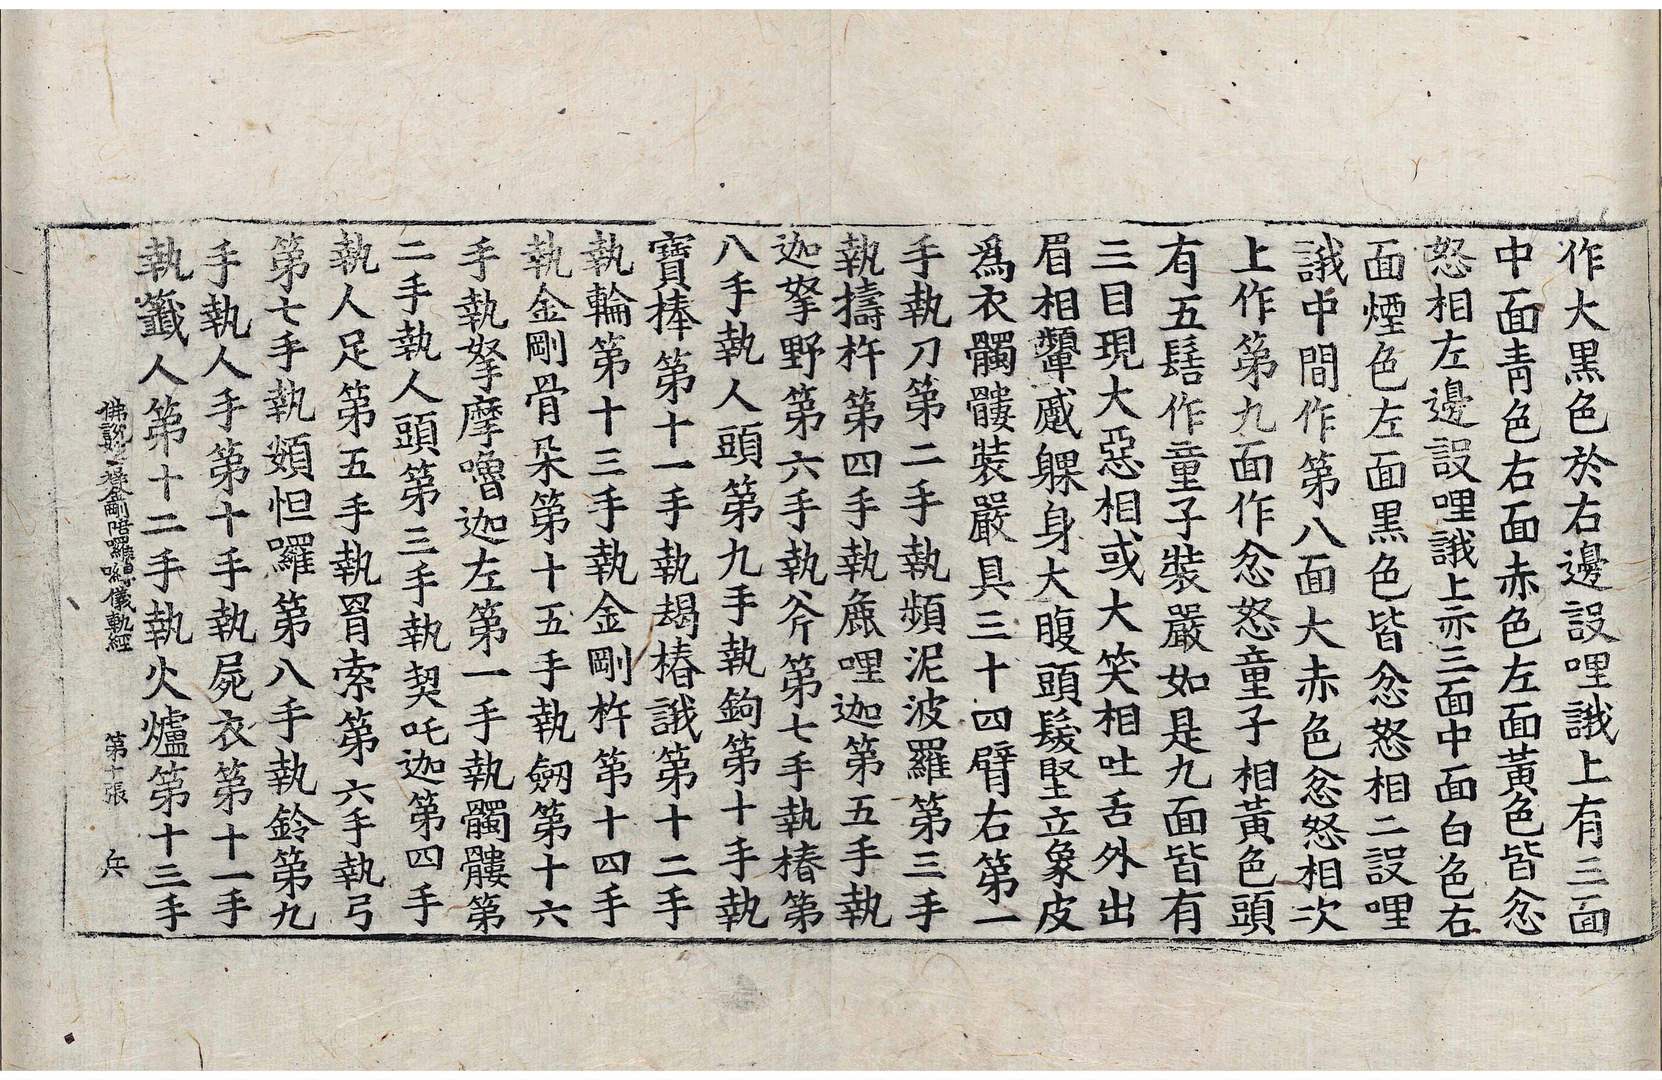 作大黑色於右邊設哩誐上有三面
中面青色右面赤色左面黃色皆忿
怒相左邊設哩誐上亦三面中面白色右
面煙色左面黑色皆忿怒相二設哩
誐中間作第八面大赤色忿怒相次
上作第九面作忿怒童子相黃色頭
有五髻作童子裝嚴如是九面皆有
三目現大惡相或大笑相吐舌外出
眉相顰蹙躶身大腹頭髮堅立象皮
爲衣髑髏裝嚴具三十四臂右第一
手執刀第二手執頻泥波羅第三手
執擣杵第四手執麁哩迦第五手執
迦拏野第六手執斧第七手執樁第
八手執人頭第九手執鉤第十手執
寶捧第十一手執朅樁誐第十二手
執輪第十三手執金剛杵第十四手
執金剛骨朵第十五手執劒第十六
手執拏摩嚕迦左第一手執髑髏第
二手執人頭第三手執契吒迦第四手
執人足第五手執罥索第六手執弓
第七手執頞怛囉第八手執鈴第九
手執人手第十手執屍衣第十一手
執籤人第十二手執火爐第十三手
佛說妙吉祥瑜伽大教金剛陪囉嚩輪觀想成就儀軌經 第十張 兵